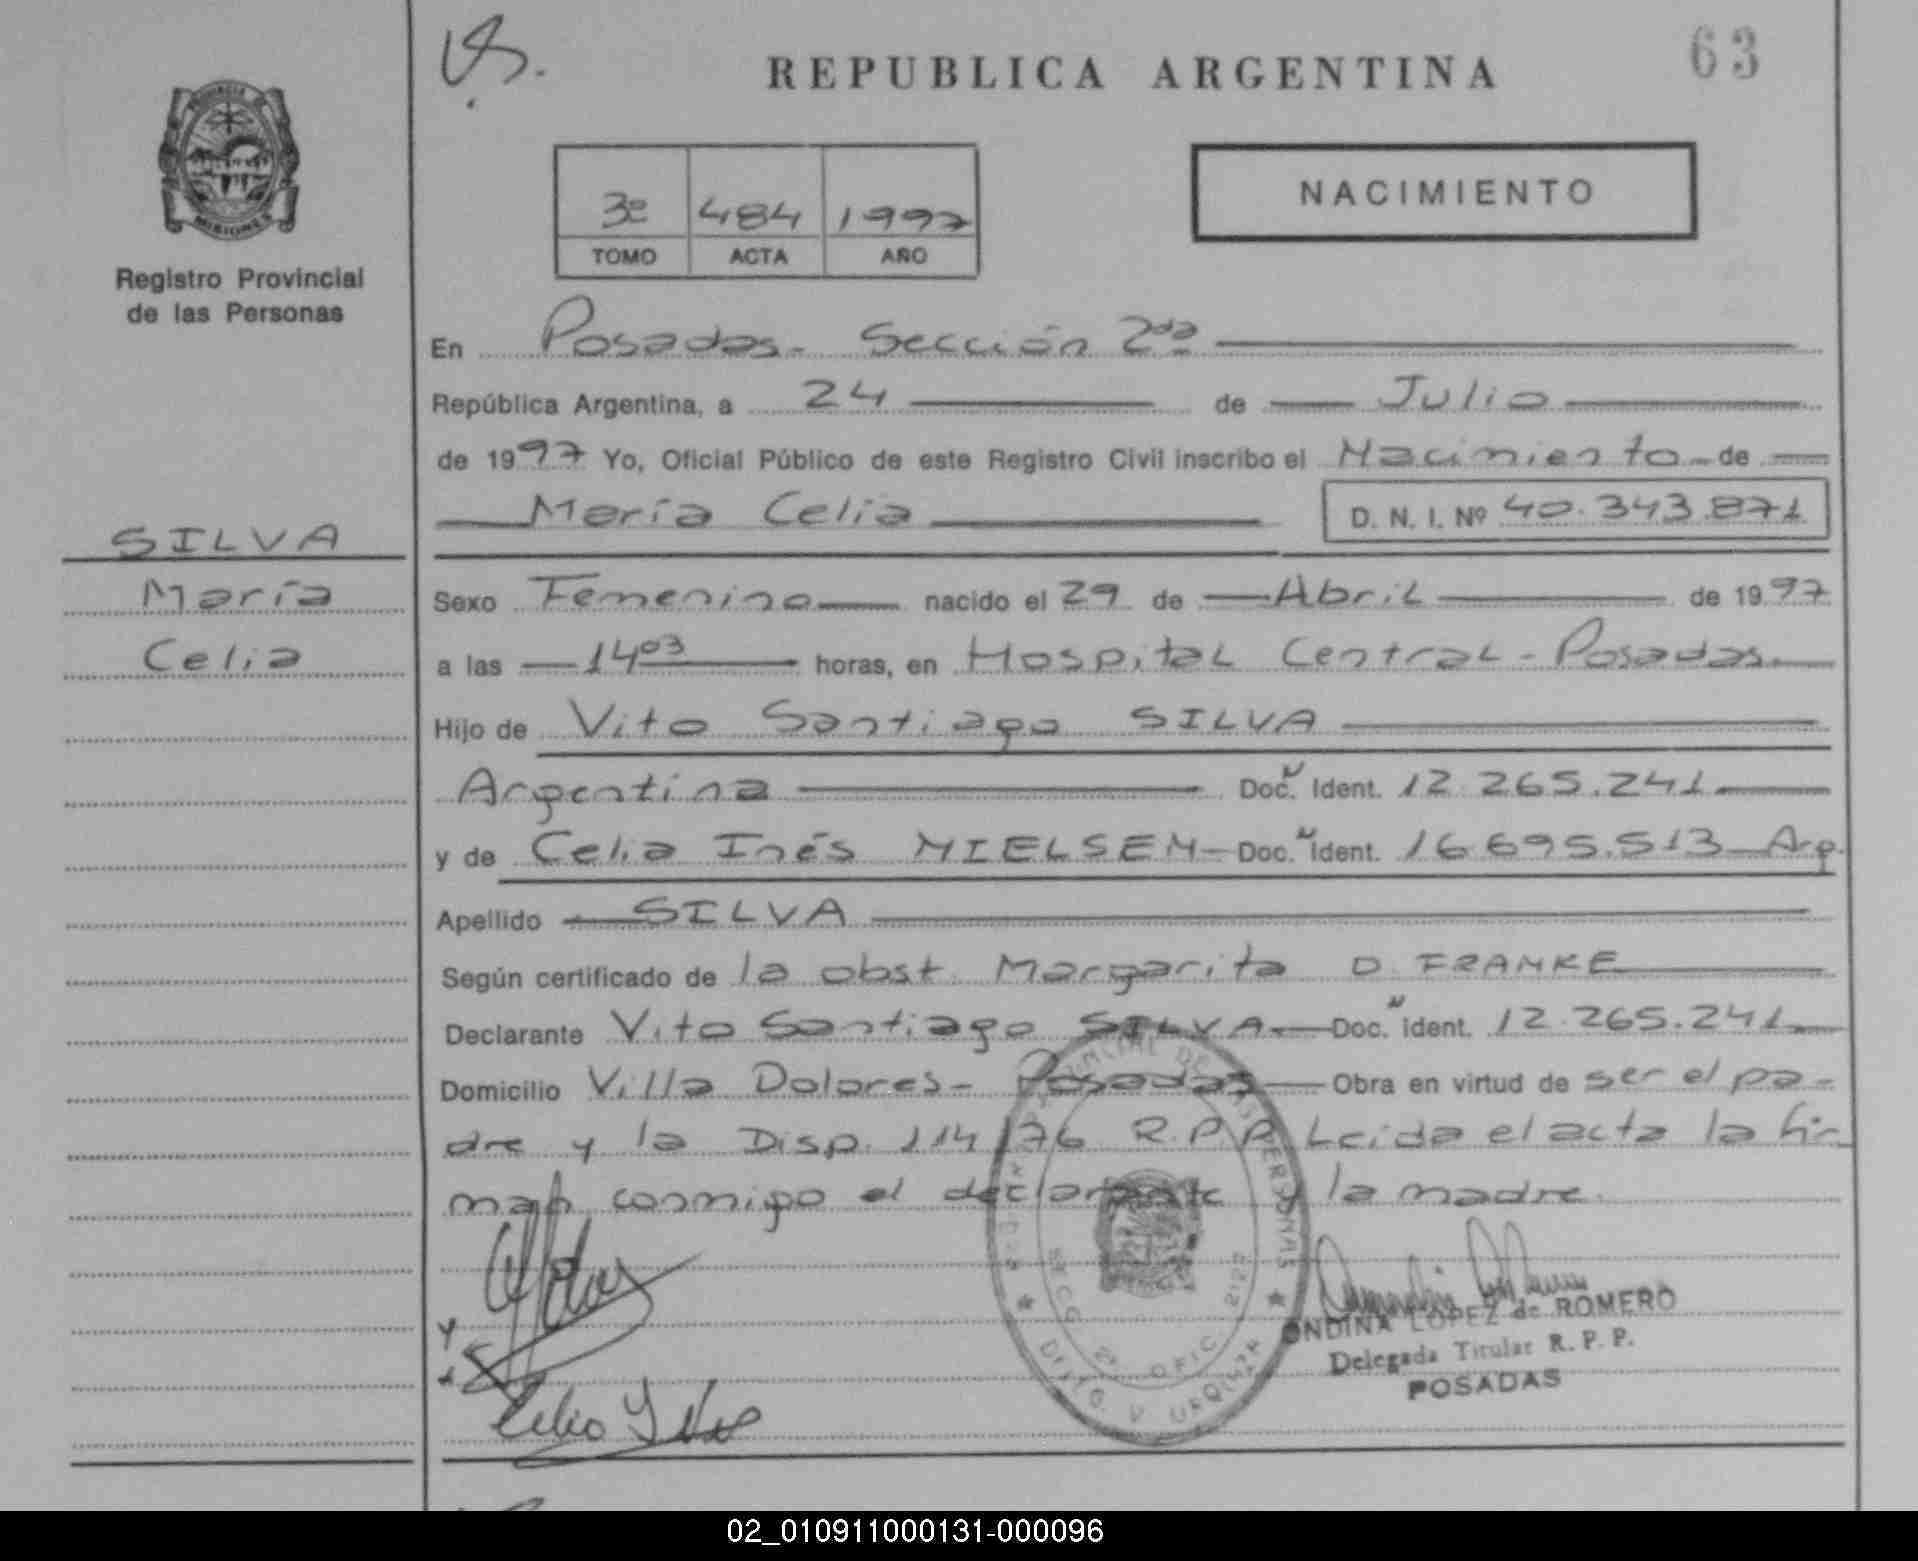 63
REPUBLICA ARGENTINA
PROVINCIA DE
MISIONES
Registro Provincial
de las Personas
NACIMIENTO
3º 484 1997
TOMO ACTA AÑO
En Posadas - Sección 2da
República Argentina, a 24 de Julio
de 1997 Yo, Oficial Público de este Registro Civil inscribo el Nacimiento de
María Celia D. N. I. Nº 40.343.871
SILVA
María
Celia
Sexo Femenino nacido el 29 de Abril de 1997
a las 14 03 horas, en Hospital Central - Posadas.
Hijo de Vito Santiago SILVA
Argentina Doc. Ident. 12.265.241
y de Celia Inés NIELSEN Doc. Ident. 16.695.513 Arg.
Apellido SILVA
Según certificado de la obst. Margarita D. FRANKE
Declarante Vito Santiago SILVA Doc. ident. 12.265.241
Domicilio Villa Dolores - Posadas Obra en virtud de ser el pa-
dre y la Disp. 114/76 R.P.P. Leída el acta la fir-
man conmigo el declarante y la madre.
ONDINA LOPEZ de ROMERO
Delegada Titular R. P. P.
POSADAS
02_010911000131-000096